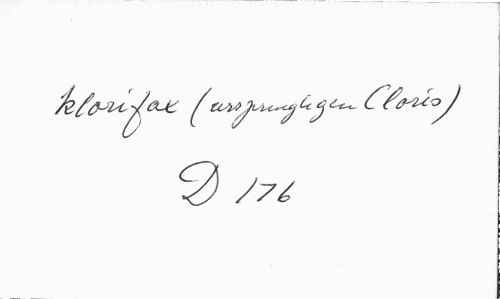 Klorifax (ursprungligen Cloris)
D 176